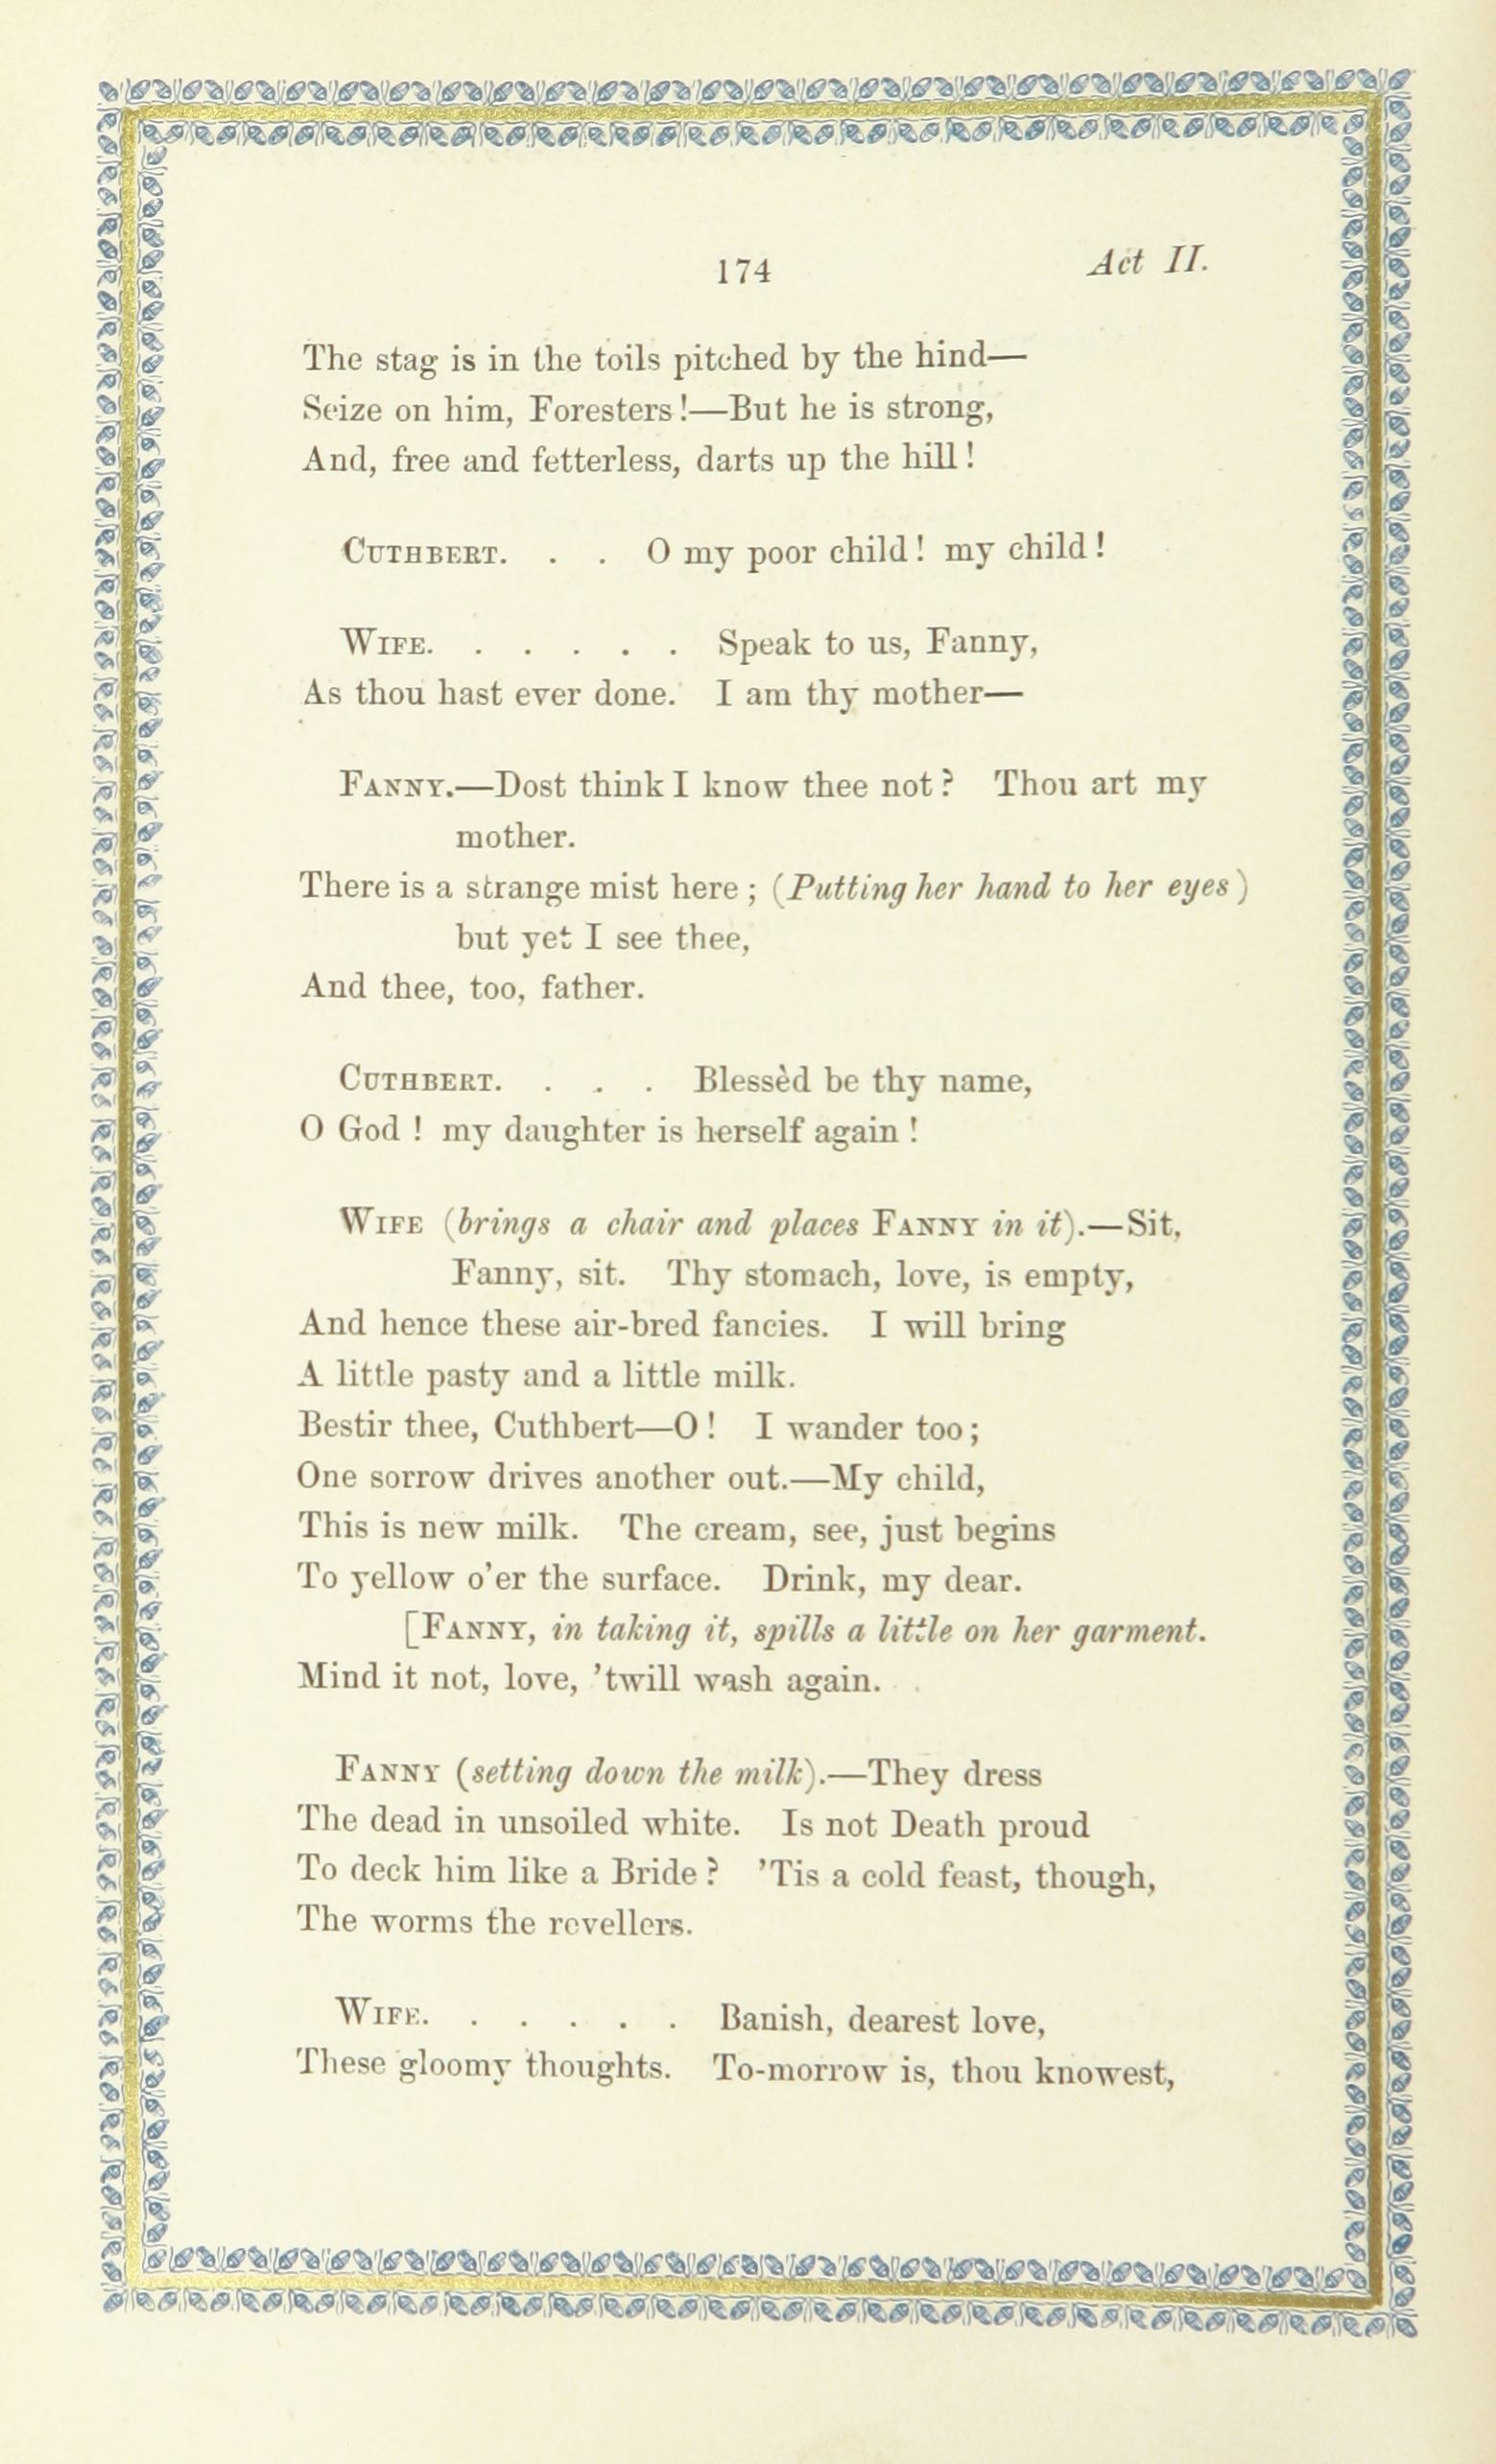 174 Act II.
The stag is in the toils pitched by the hind—
Seize on him, Foresters!—But he is strong,
And, free and fetterless, darts up the hill!
CUTHBERT. . . O my poor child! my child!
WIFE. . . . . . Speak to us, Fanny,
As thou hast ever done. I am thy mother—
FANNY.—Dost think I know thee not? Thou art my
mother.
There is a strange mist here; (Putting her hand to her eyes)
but yet I see thee,
And thee, too, father.
CUTHBERT. . . . Blessèd be thy name,
O God! my daughter is herself again!
WIFE (brings a chair and places FANNY in it).—Sit,
Fanny, sit. Thy stomach, love, is empty,
And hence these air-bred fancies. I will bring
A little pasty and a little milk.
Bestir thee, Cuthbert—O! I wander too;
One sorrow drives another out.—My child,
This is new milk. The cream, see, just begins
To yellow o'er the surface. Drink, my dear.
[FANNY, in taking it, spills a little on her garment.
Mind it not, love, 'twill wash again.
FANNY (setting down the milk).—They dress
The dead in unsoiled white. Is not Death proud
To deck him like a Bride? 'Tis a cold feast, though,
The worms the revellers.
WIFE. . . . . . Banish, dearest love,
These gloomy thoughts. To-morrow is, thou knowest,